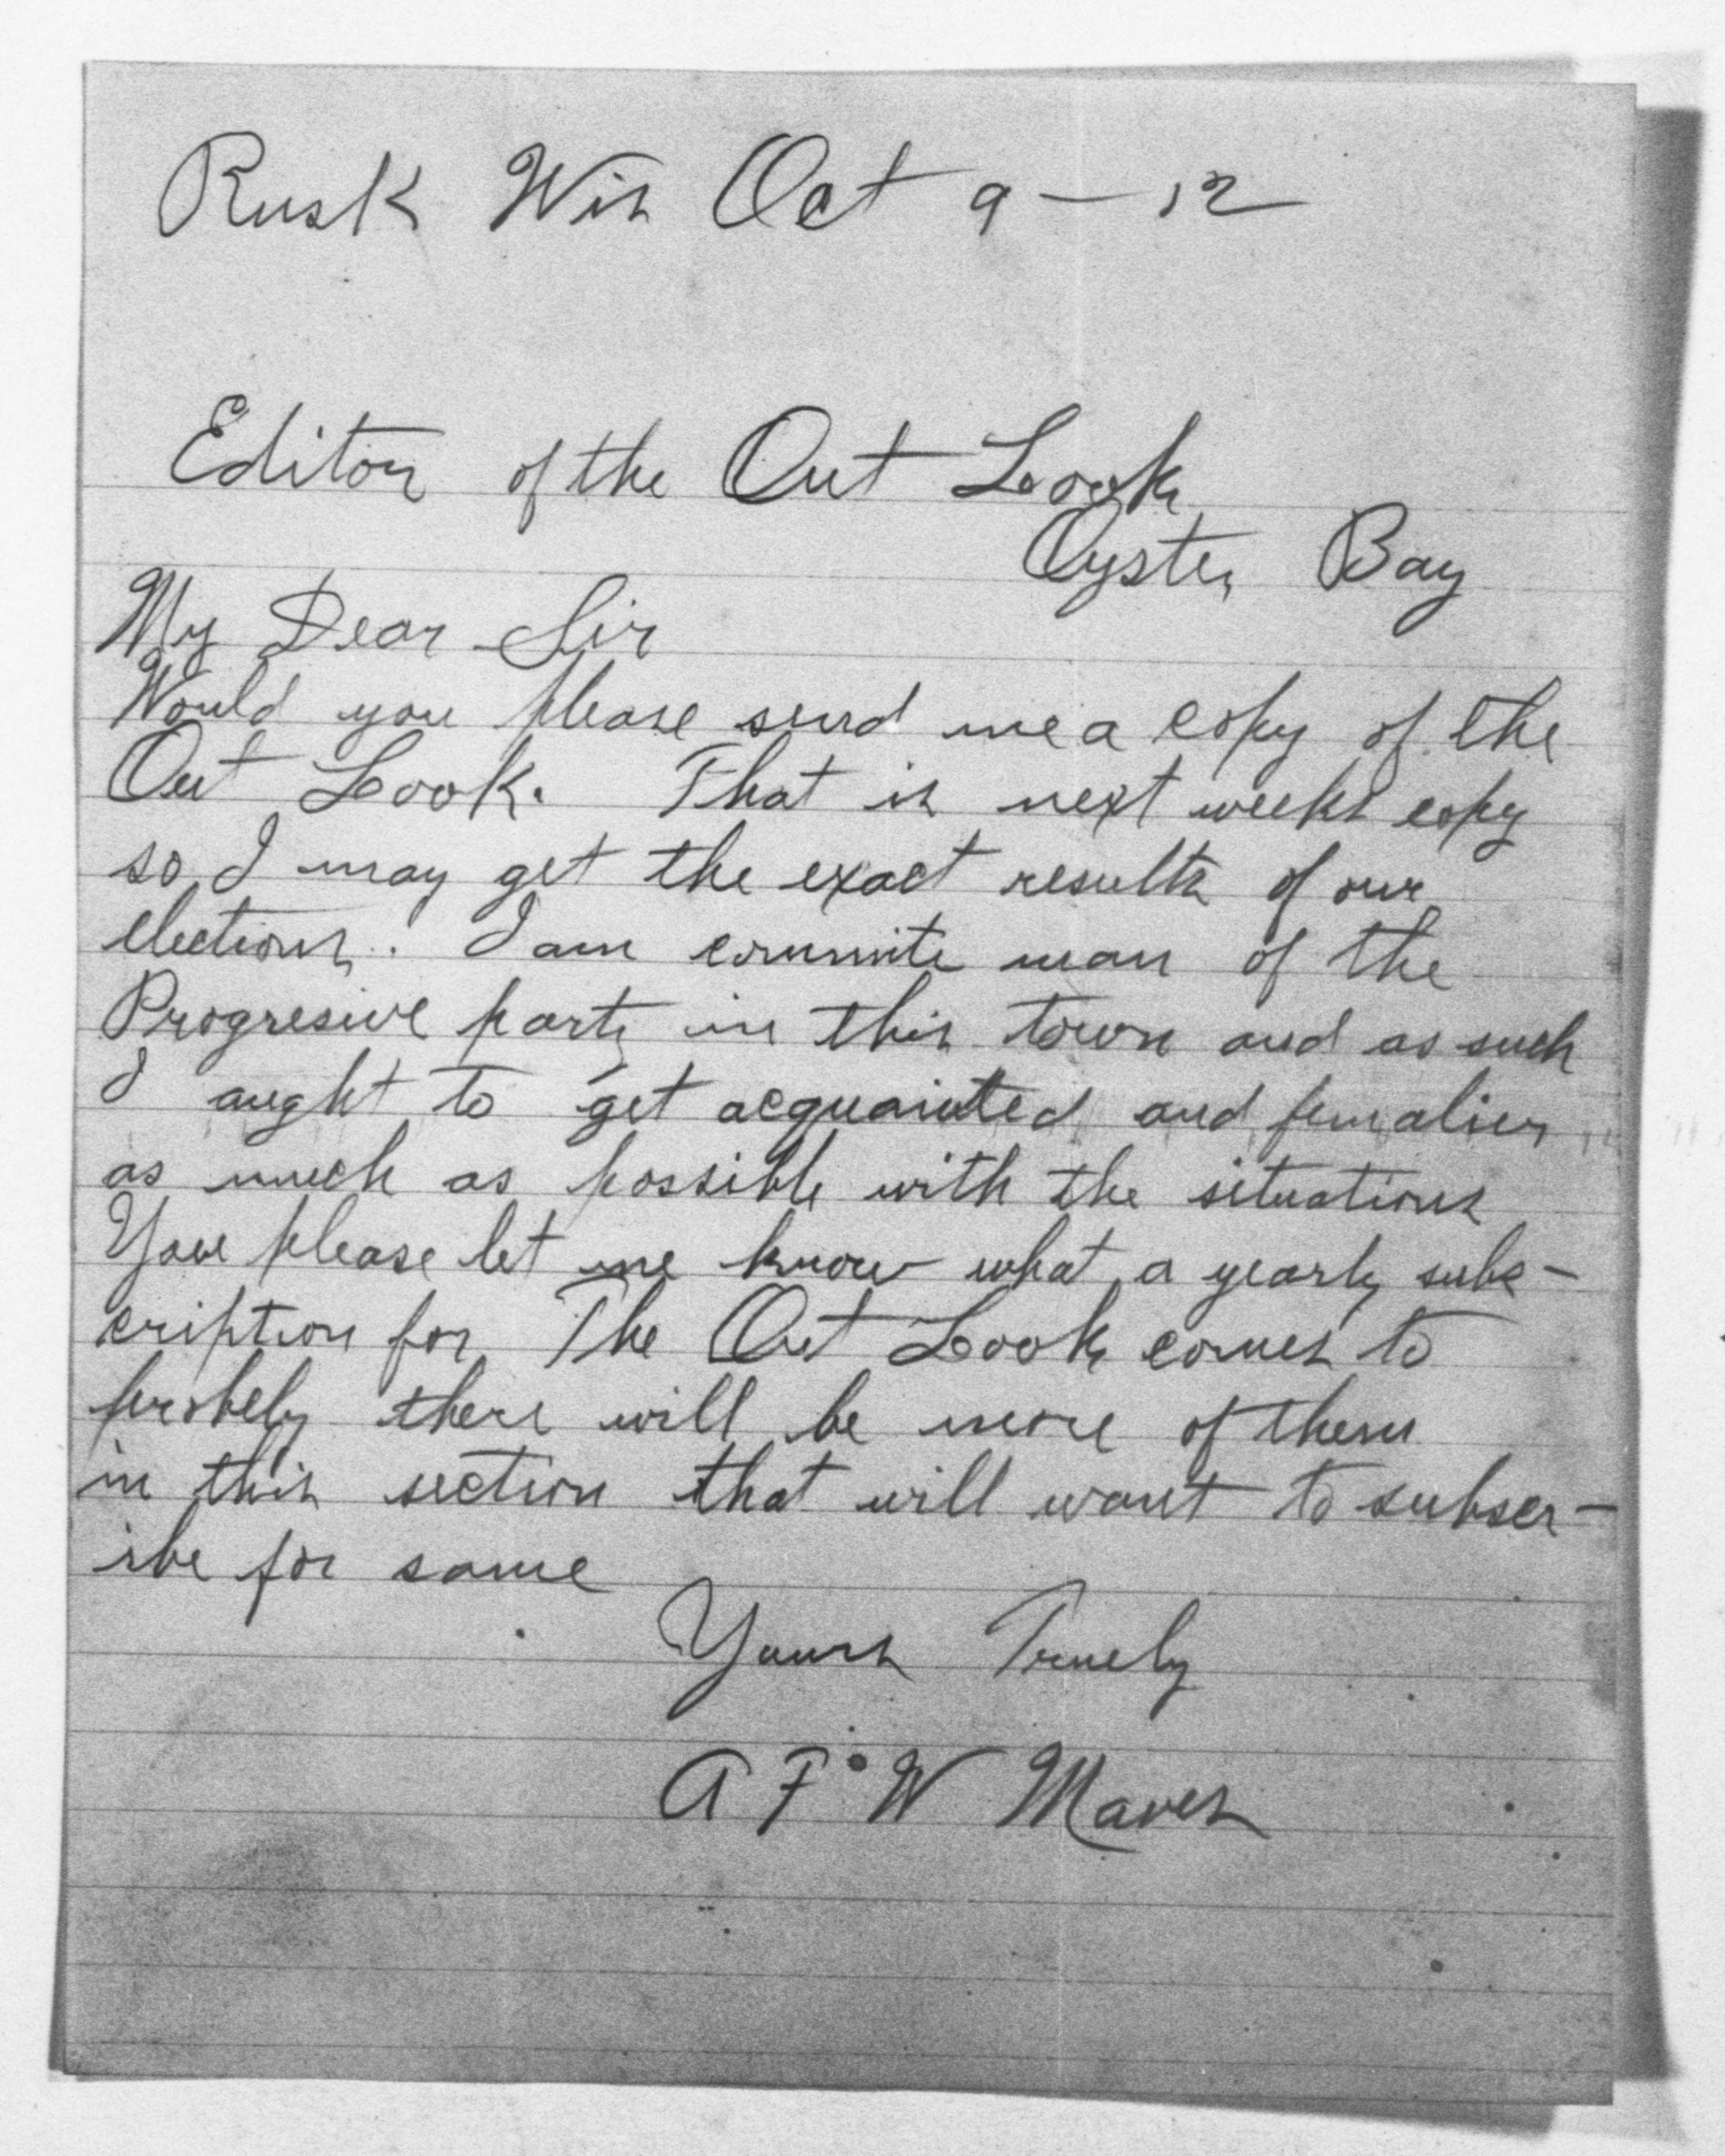 Rusk Wis Oct 9 — 12
Editor of the Out Look
Oyster Bay
My Dear Sir
Would you please send me a copy of the
Out Look. That is next weeks copy
so I may get the exact results of our
elections. I am committe man of the
Progresive party in this town and as such
I aught to get acquainted and femalier
as much as possible with the situations
You please let me know what a yearly subs-
cription for The Out Look comes to
probely there will be more of them
in this section that will want to subscr-
ibe for same
Yours Truely
A F W Maves